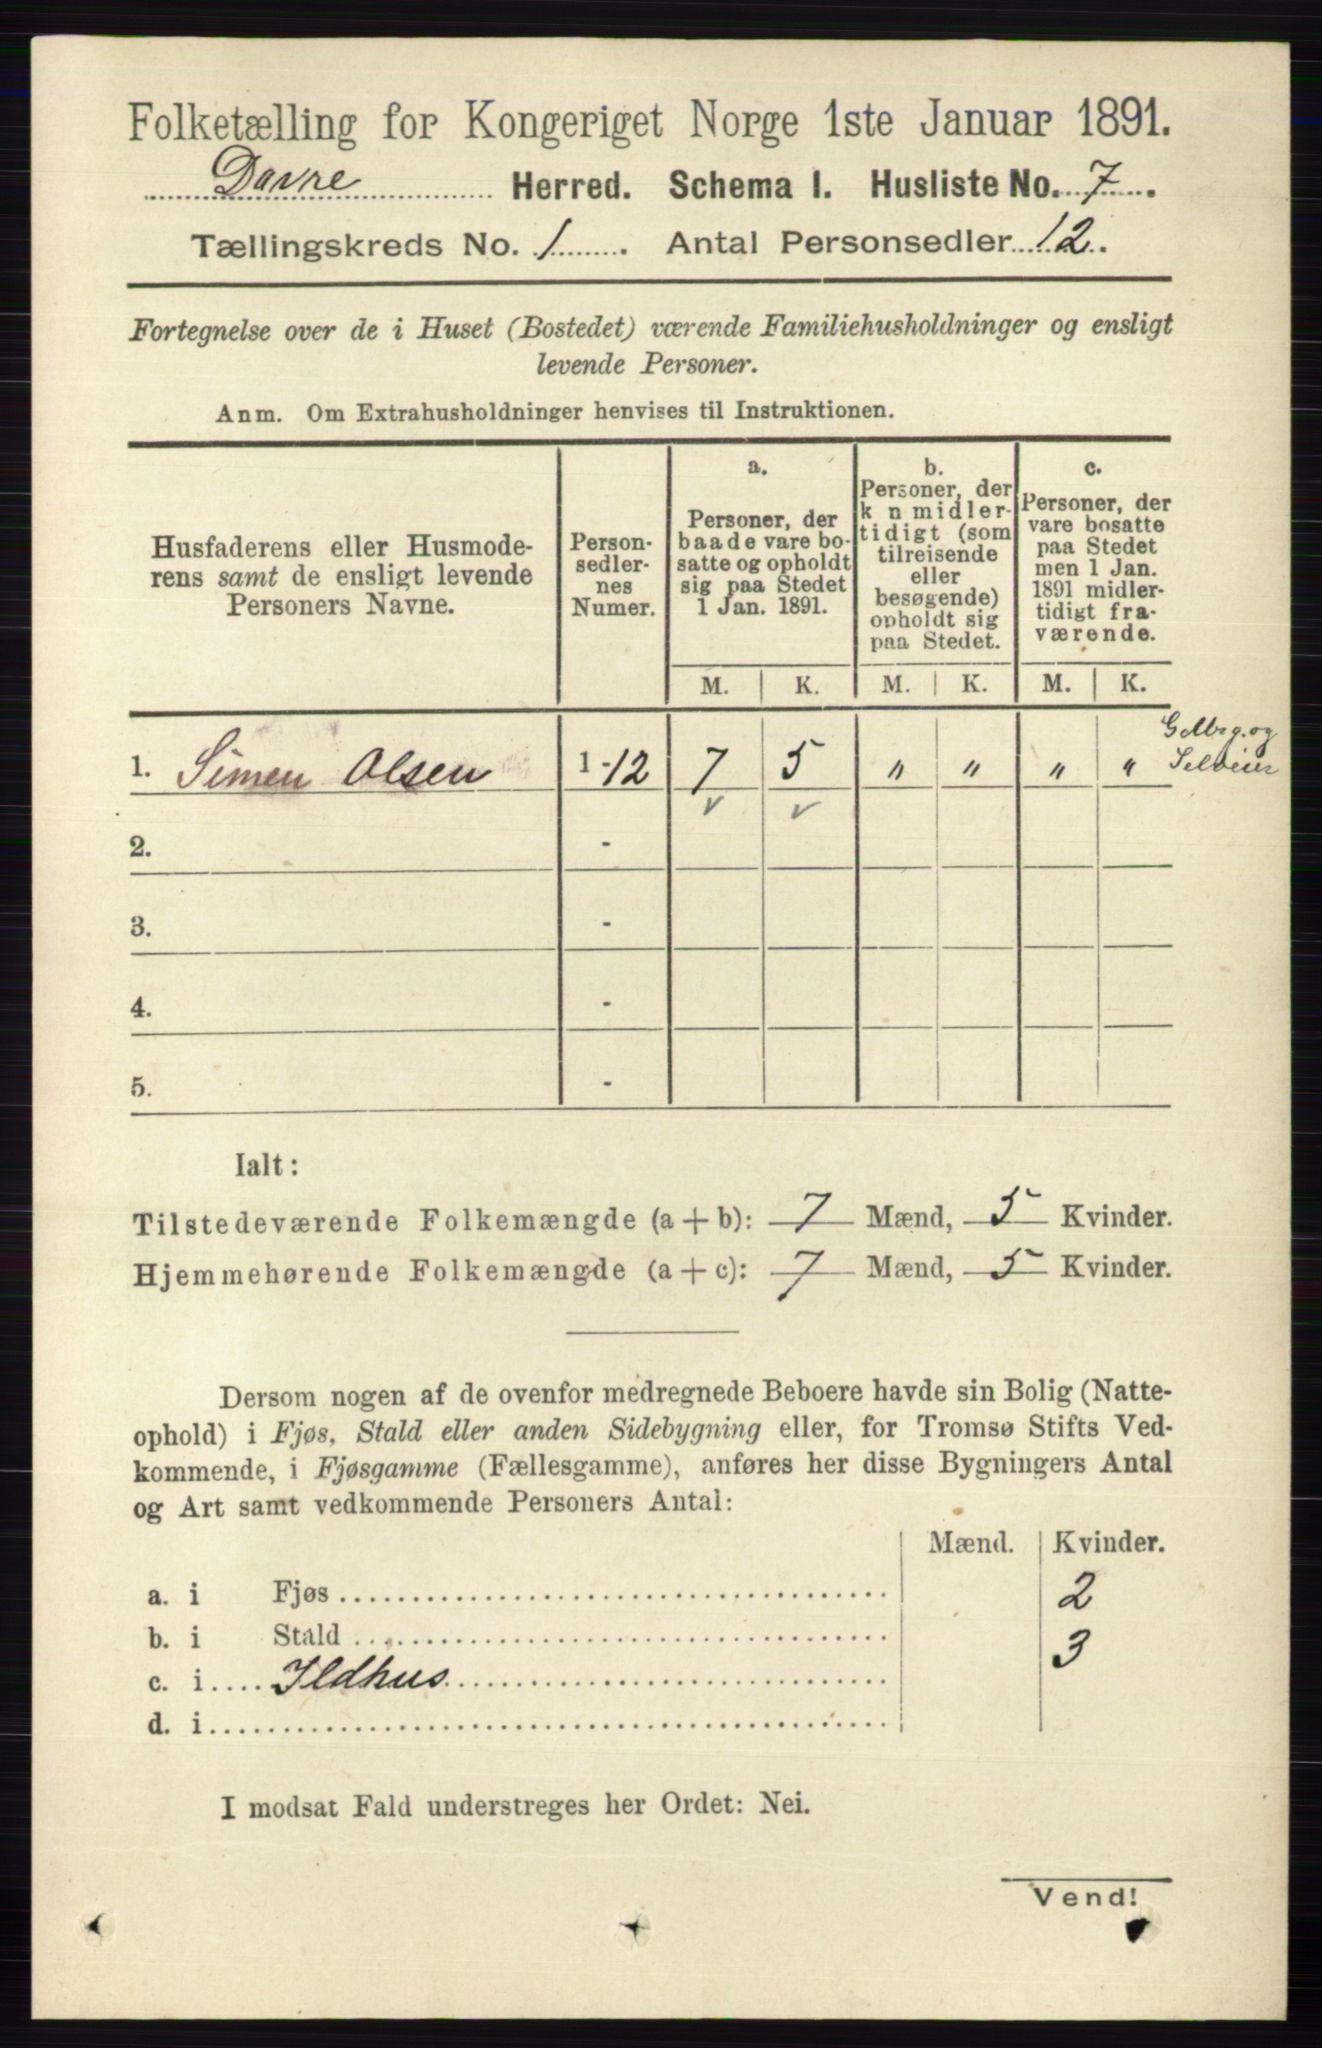 Folketælling for Kongeriget Norge 1ste Januar 1891.
Davre Herred. Schema I. Husliste No. 7.
Tællingskreds No. 1. Antal Personsedler 12.
Fortegnelse over de i Huset (Bostedet) værende Familiehusholdninger og ensligt
levende Personer.
Anm. Om Extrahusholdninger henvises til Instruktionen.
Husfaderens eller Husmode-
rens samt de ensligt levende
Personers Navne.
Person-
sedler-
nes
Numer.
a.
Personer, der
baade vare bo-
satte og opholdt
sig paa Stedet
1 Jan. 1891.
b.
Personer, der
k n midler-
tidigt (som
tilreisende
eller
besøgende)
opholdt sig
paa Stedet.
c.
Personer, der
vare bosatte
paa Stedet
men 1 Jan.
1891 midler-
tidigt fra-
værende.
M. K. M. K. M. K.
1. Simen Olsen 1-12 7 5 " " " "
og
Selveier
2. -
3. -
4. -
5. -
Ialt:
Tilstedeværende Folkemængde (a + b): 7 Mænd, 5 Kvinder.
Hjemmehørende Folkemængde (a + c): 7 Mænd, 5 Kvinder.
Dersom nogen af de ovenfor medregnede Beboere havde sin Bolig (Natte-
ophold) i Fjøs, Stald eller anden Sidebygning eller, for Tromsø Stifts Ved-
kommende, i Fjøsgamme (Fællesgamme), anføres her disse Bygningers Antal
og Art samt vedkommende Personers Antal:
Mænd. Kvinder.
a. i Fjøs 2
b. i Stald 3
c. i Ildhus
d. i
I modsat Fald understreges her Ordet: Nei.
Vend!